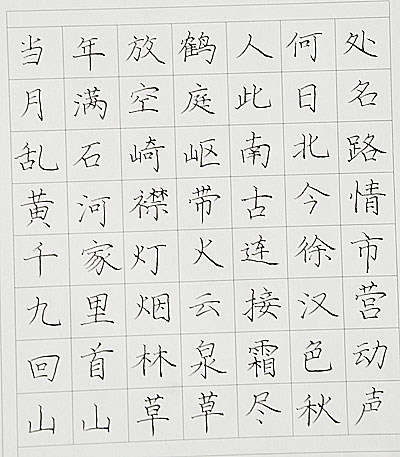 当年放鹤人何处
月满空庭此日名
乱石崎岖南北路
黄河襟带古今情
千家灯火连徐市
九里烟云接汉营
回首林泉霜色动
山山草草尽秋声